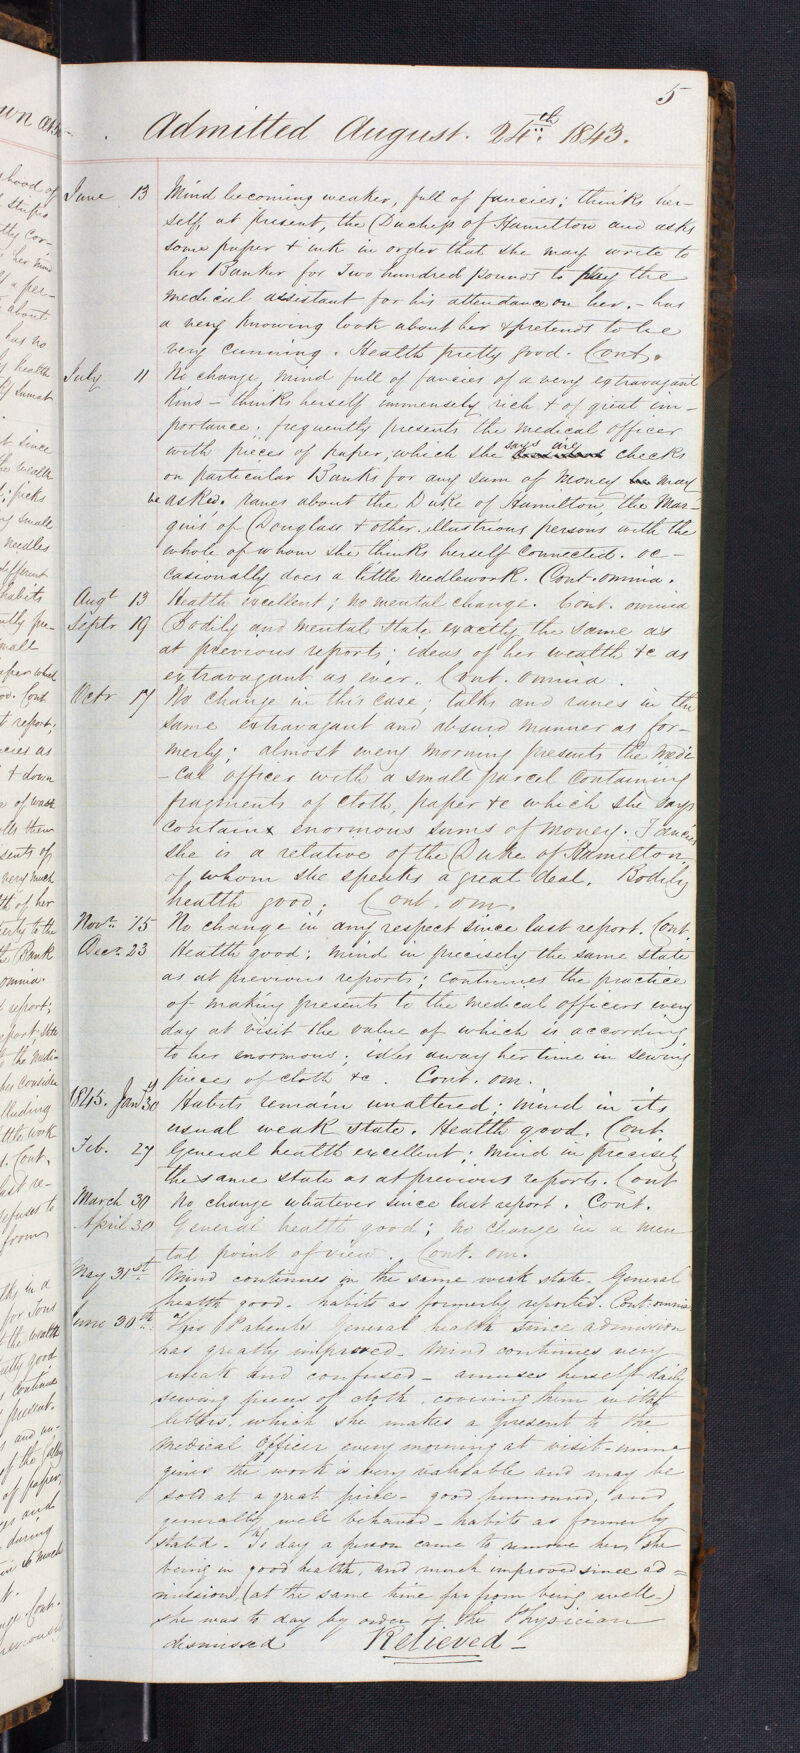 5
Admitted August. 24th. 1843.
June 13 Mind becoming weaker, full of fancies; thinks her-
self, at present, the Duchess of Hamilton and asks
some paper & ink in order that she may write to
her Banker for Two hundred pounds to pay the
medical assistant for his attendance on her. - has
a very knowing look about her & pretends to be
very cunning. Health pretty good. Cont.
July 11 No change, mind full of fancies of a very extravagant
kind - thinks herself immensely rich & of great im-
portance; frequently presents the medical officer
with pieces of paper, which she says are checks
on particular Banks for any sum of money he may
be asked. raves about the Duke of Hamilton, the Mar-
quis of Douglass & other illustrious persons with the
whole of whom she thinks herself connected. oc-
casionally does a little needlework. Cont. omnia.
Augt 13 Health excellent; no mental change. Cont. omnia
Septr 19 Bodily and mental state exactly the same as
at previous reports; ideas of her wealth &c as
extravagant as ever. Cont. omnia.
Octr 17 No change in this case; talks and raves in the
same extravagant and absurd manner as for-
merly; almost every morning presents the medi
-cal officer with a small parcel containing
fragments of cloth, paper &c which she says
contains enormous sums of money. Fancies
she is a relative of the Duke of Hamilton,
of whom she speaks a great deal. Bodily
health good. Cont. om.
Novr 15 No change in any respect since last report. Cont.
Decr 23 Health good; mind in precisely the same state
as at previous reports; continues the practice
of making presents to the medical officers every
day at visit the value of which is according
to her enormous; idles away her time in sewing
pieces of cloth &c. Cont. om.
1845. Jany 30 Habits remain unaltered; mind in its
usual weak state. Health good. Cont
Feb. 27 General health excellent; mind in precisely
the same state as at previous reports. Cont
March 30 No change whatever since last report. Cont.
April 30 General health good; no change in a men
tal point of view. Cont. om.
May 31st Mind continues in the same weak state. General
health good. habits as formerly reported. Cont: omnia
June 30th This Patients General health since admission
has greatly improved. Mind continues very
weak and confused - amuses herself daily
sewing pieces of cloth, covering them with
letters, which she makes a present to the
medical Officer every morning at visit - imma
gines the work is very valuable and may be
sold at a great price - good humoured, and
generally well behaved - habits as formerly
stated. To day a person came to remove her, she
being in good health, and much improved since ad=
mission, (at the same time far from being well.)
she was to day by order of the Physician
dismissed Relieved -